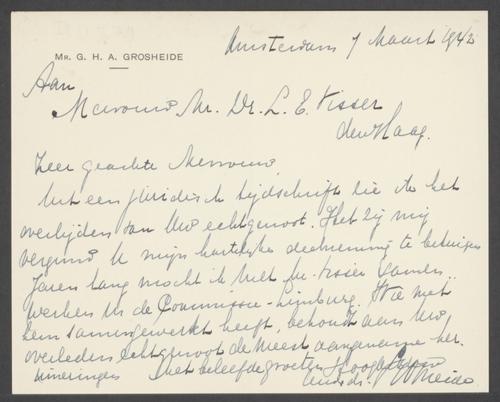 Mr. G. H. A. GROSHEIDE
Amsterdam 7 Maart 1942
Aan
Mevrouw Mr. Dr. L. E. Visser
den Haag.
Zeer geachte Mevrouw,
Uit een juridisch tijdschrift zie ik het
overlijden van Uw echtgenoot. Het zij mij
vergund U mijn hartelijke deelneming te betuigen
Jaren lang mocht ik met Mr. Visser samen-
werken in de Commissie-Limburg. Wie met
hem samengewerkt heeft, behoudt aan Uw
overleden echtgenoot de meest aangename her-
inneringen Met beleefde groeten Hoogachtend
Grosheide